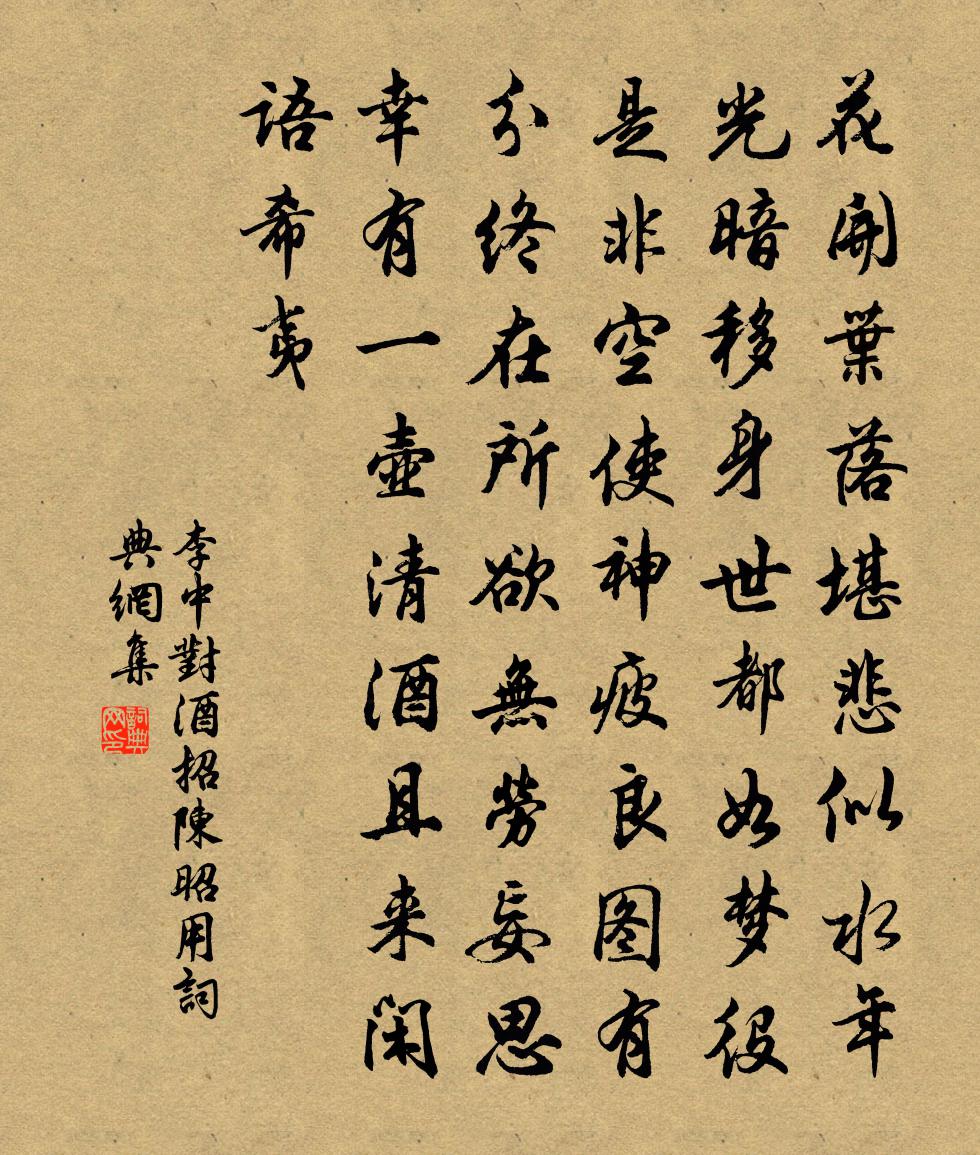 花開葉落堪悲似水年
光暗移身世都如梦役
是非空使神疲良图有
分终在所欲無勞妄思
幸有一壺清酒且来闲
语希夷
李中對酒招陳昭用詞
典網集
詞典
网印